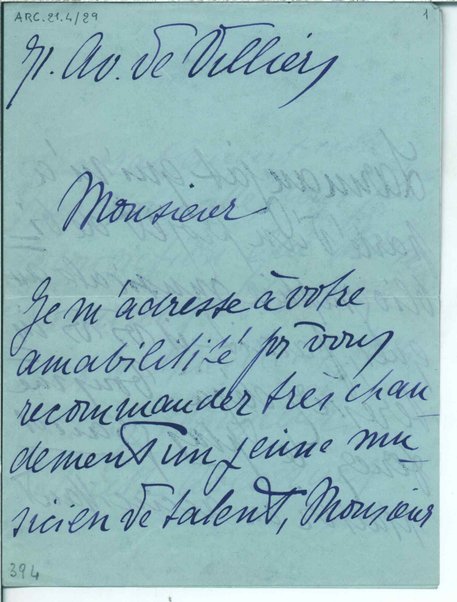 ARC.21.4/29
1
71. Av. de Villiers
Monsieur
Je m'adresse à votre
amabilitité pr vous
recommander très chau
dement un jeune mu
sicien de talent, Monsieur
394